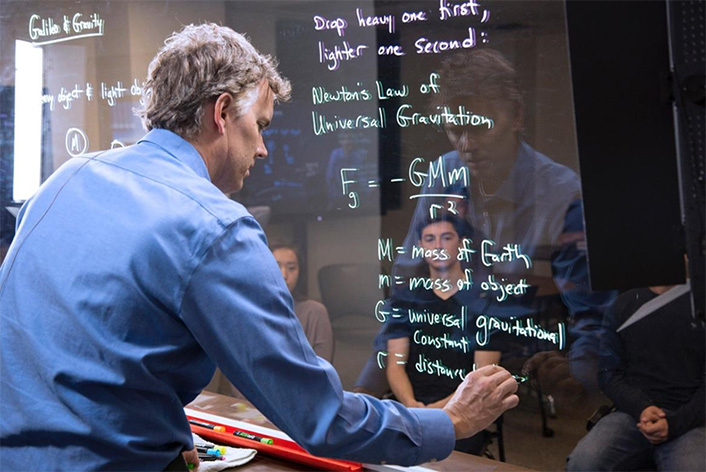 Galileo & Gravity
object & light
M
Drop heavy one first,
lighter one second:
Newton's Law of
Universal Gravitation
Fg = - GMm
r²
M = mass of Earth
m = mass of object
G = universal gravitational
constant
r =